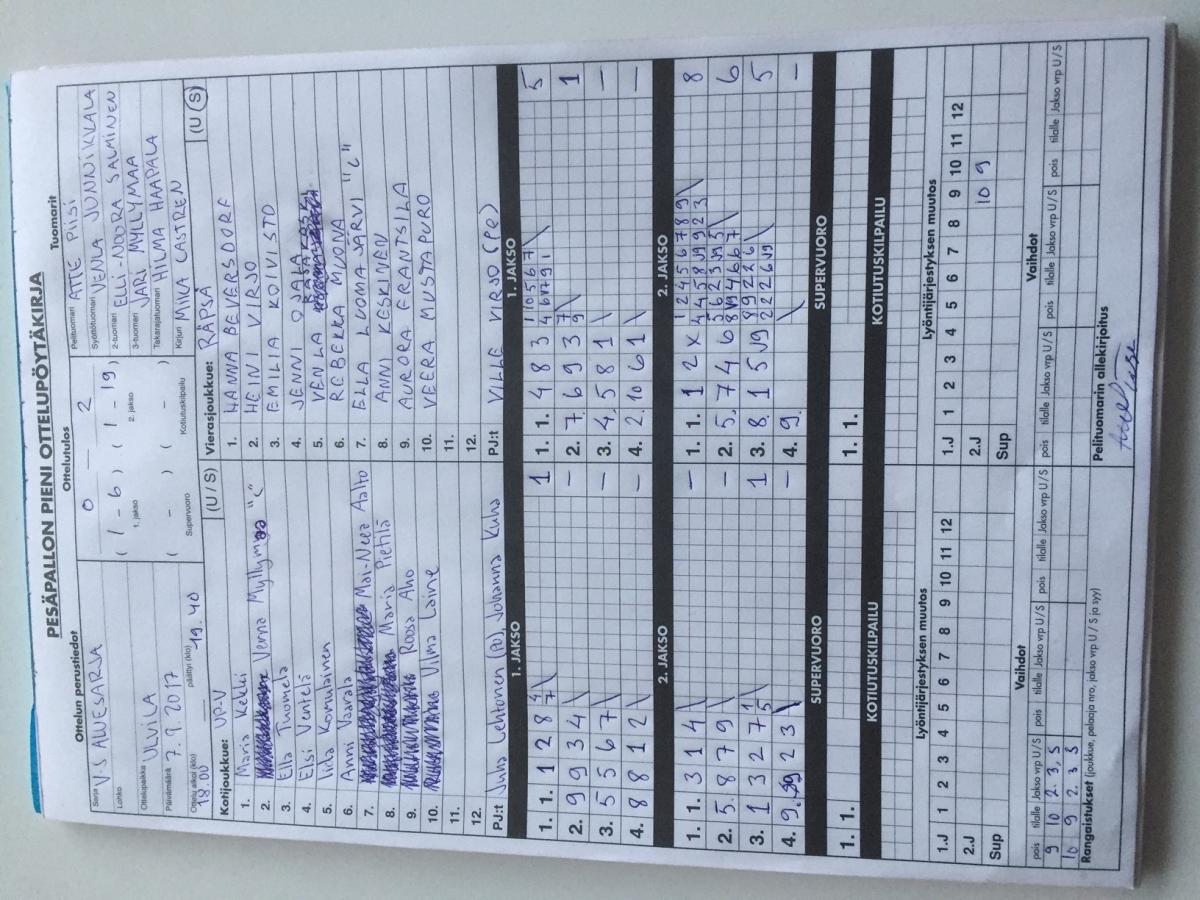 PESÄPALLON PIENI OTTELUPÖYTÄKIRJA
Ottelun perustiedot
Sarja V-S ALUESARJA
Lohko
Ottelupaikka ULVILA
Päivämäärä 7.9.2017
Ottelu alkoi (klo) 18.00 päättyi (klo) 19.40
Ottelutulos
0 — 2
( 1 - 6 ) ( 1 - 19 )
1. jakso 2. jakso
( - ) ( - )
Supervuoro Kotiutuskilpailu
Tuomarit
Pelituomari ATTE PIISI
Syöttötuomari VENLA JUNNIKKALA
2-tuomari ELLI-NOORA SALMINEN
3-tuomari JARI MYLLYMAA
Takarajatuomari HILMA HAAPALA
Kirjuri MIKA LASTREN
Kotijoukkue: UP-V (U / S)
1. Maria Kekki
2. Venna Myllymaa "C"
3. Ella Tuomela
4. Elsi Ventelä
5. Iida Komulainen
6. Anni Vaarala
7. Mai-Neea Aalto
8. Maria Pietilä
9. Roosa Aho
10. Vilma Laine
11.
12.
PJ:t Juha Lehtonen (PJ), Johanna Kuha
Vierasjoukkue: RÄPSÄ (U / S)
1. HANNA BEVERSDORF
2. HEINI VIRJO
3. EMILIA KOIVISTO
4. JENNI OJALA
5. VENLA RAJATASKI
6. REBEKKA MUONA
7. ELLA LUOMAJÄRVI "C"
8. ANNI KESKINEN
9. AURORA FRANTSILA
10. VEERA MUSTAPURO
11.
12.
PJ:t VILLE VIRJO (PJ)
1. JAKSO
1. 1. 1 2 8 4 7 \ 1
2. 9 9 3 4 \ –
3. 5 5 6 7 \ –
4. 8 8 1 2 \ –
1. JAKSO
1. 1. 4 8 3 5
2. 7 6 9 3 1
3. 4 5 8 1 \ –
4. 2 10 6 1 \ –
2. JAKSO
1. 1. 3 1 4 \ –
2. 5 8 7 9 \ –
3. 1 3 2 7 1 5 \ 1
4. 9 2 3 \ –
2. JAKSO
1. 1. 1 2 X 8
2. 5 7 4 6 6
3. 8 1 5 5
4. 9 \ –
SUPERVUORO
1. 1.
SUPERVUORO
1. 1.
KOTIUTUSKILPAILU
KOTIUTUSKILPAILU
Lyöntijärjestyksen muutos
1 2 3 4 5 6 7 8 9 10 11 12
1.J
2.J
Sup
Lyöntijärjestyksen muutos
1 2 3 4 5 6 7 8 9 10 11 12
1.J
2.J 10 9
Sup
Vaihdot
pois tilalle Jakso vrp U / S pois tilalle Jakso vrp U / S pois tilalle Jakso vrp U / S
9 10 2. 3. S
10 9 2. 3 S
Vaihdot
pois tilalle Jakso vrp U / S pois tilalle Jakso vrp U / S pois tilalle Jakso vrp U / S
Rangaistukset (joukkue, pelaaja nro, jakso vrp U / S ja syy)
Pelituomarin allekirjoitus